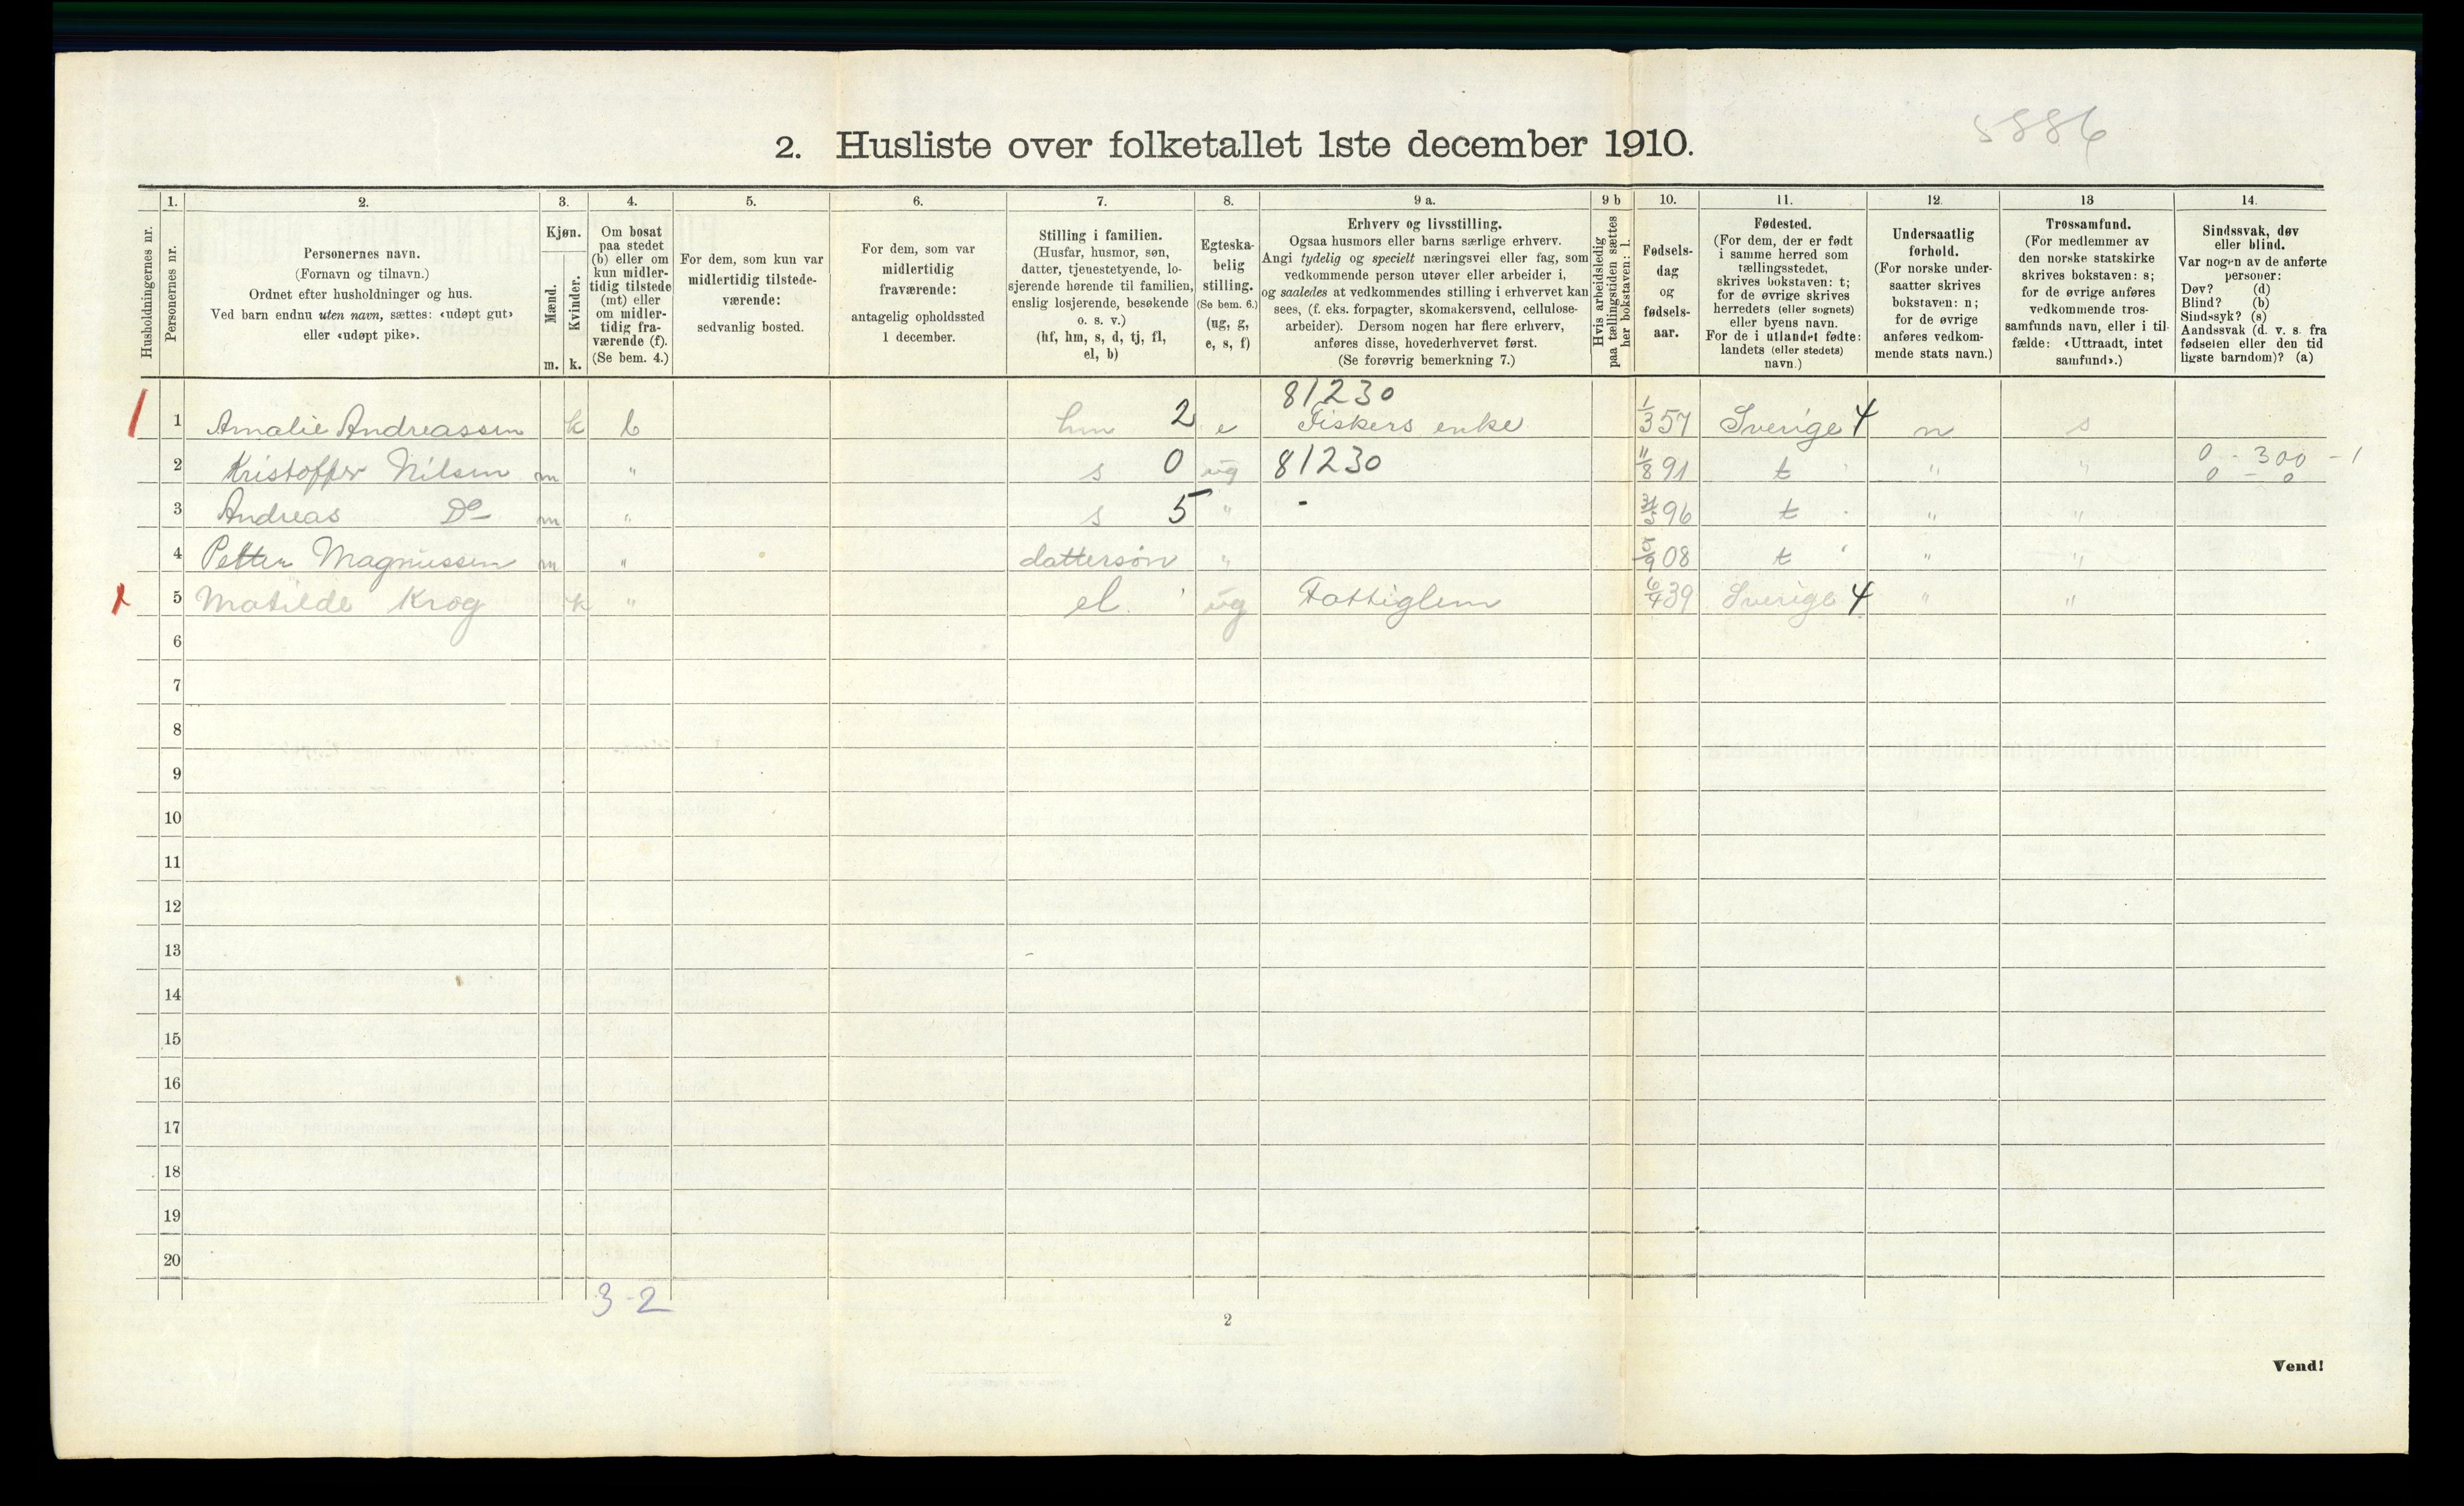 5886
2. Husliste over folketallet 1ste december 1910.
Husholdningernes nr.
1.
Personernes nr.
2.
Personernes navn.
(Fornavn og tilnavn.)
Ordnet efter husholdninger og hus.
Ved barn endnu uten navn, sættes: «udøpt gut»
eller «udøpt pike».
3.
Kjøn.
Mænd.
Kvinder.
m. k.
4.
Om bosat
paa stedet
(b) eller om
kun midler-
tidig tilstede
(mt) eller
om midler-
tidig fra-
værende (f).
(Se bem. 4.)
5.
For dem, som kun var
midlertidig tilstede-
værende:
sedvanlig bosted.
6.
For dem, som var
midlertidig
fraværende:
antagelig opholdssted
1 december.
7.
Stilling i familien.
(Husfar, husmor, søn,
datter, tjenestetyende, lo-
sjerende hørende til familien,
enslig losjerende, besøkende
o. s. v.)
(hf, hm, s, d, tj, fl,
el, b)
8.
Egteska-
belig
stilling.
(Se bem. 6.)
(ug, g,
e, s, f)
9 a.
Erhverv og livsstilling.
Ogsaa husmors eller barns særlige erhverv.
Angi tydelig og specielt næringsvei eller fag, som
vedkommende person utøver eller arbeider i,
og saaledes at vedkommendes stilling i erhvervet kan
sees, (f. eks. forpagter, skomakersvend, cellulose-
arbeider). Dersom nogen har flere erhverv,
anføres disse, hovederhvervet først.
(Se forøvrig bemerkning 7.)
9 b
Hvis arbeidsledig
paa tællingstiden sættes
her bokstaven: l.
10.
Fødsels-
dag
og
fødsels-
aar.
11.
Fødested.
(For dem, der er født
i samme herred som
tællingsstedet,
skrives bokstaven: t;
for de øvrige skrives
herredets (eller sognets)
eller byens navn.
For de i utlandet fødte:
landets (eller stedets)
navn.)
12.
Undersaatlig
forhold.
(For norske under-
saatter skrives
bokstaven: n;
for de øvrige
anføres vedkom-
mende stats navn.)
13
Trossamfund.
(For medlemmer av
den norske statskirke
skrives bokstaven: s;
for de øvrige anføres
vedkommende tros-
samfunds navn, eller i til-
fælde: «Uttraadt, intet
samfund».)
14.
Sindssvak, døv
eller blind.
Var nogen av de anførte
personer:
Døv? (d)
Blind? (b)
Sindssyk? (s)
Aandssvak (d. v. s. fra
fødselen eller den tid
ligste barndom)? (a)
81230
1 1 Amalie Andreassen k b hm 2 e Fiskers enke 1/3 57 Sverige 4 n s
2 Kristoffer Nilsen m " s 0 ug 81230 11/8 91 t " " 0 - 300 - 1
0 - 0
3 Andreas Do m " s 5 " - 31/5 96 t " "
4 Petter Magnussen m " dattersøn " 5/9 08 t " "
x 5 Matilde Krog k " el. ug Fattiglem 6/4 39 Sverige 4 " "
6
7
8
9
10
11
12
13
14
15
16
17
18
19
20
3-2
2
Vend!